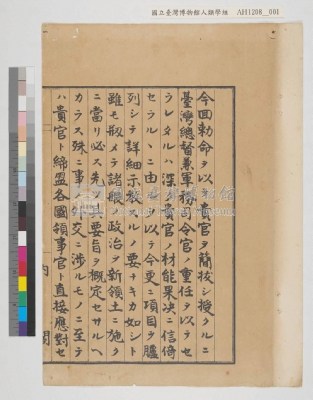 國立臺灣博物館人類學組 AH1208_001
今回勅命ヲ以テ貴官ヲ簡拔シ授クルニ
臺灣總督兼軍務司令官ノ重任ヲ以テセ
ラレタルハ深ク貴官ノ材能果决ニ信倚
セラルヽニ由ル以テ今更ニ項目ヲ臚
列シテ詳細示教スルノ要ナキカ如シト
雖モ剏メテ諸般ノ政治ヲ新領土ニ施ク
ニ當リ必ス先其要旨ヲ概定セサルヘ
カラス殊ニ事外交ニ渉ルモノニ至テ
ハ貴官ト締盟各國領事官ト直接應對セ
內閣